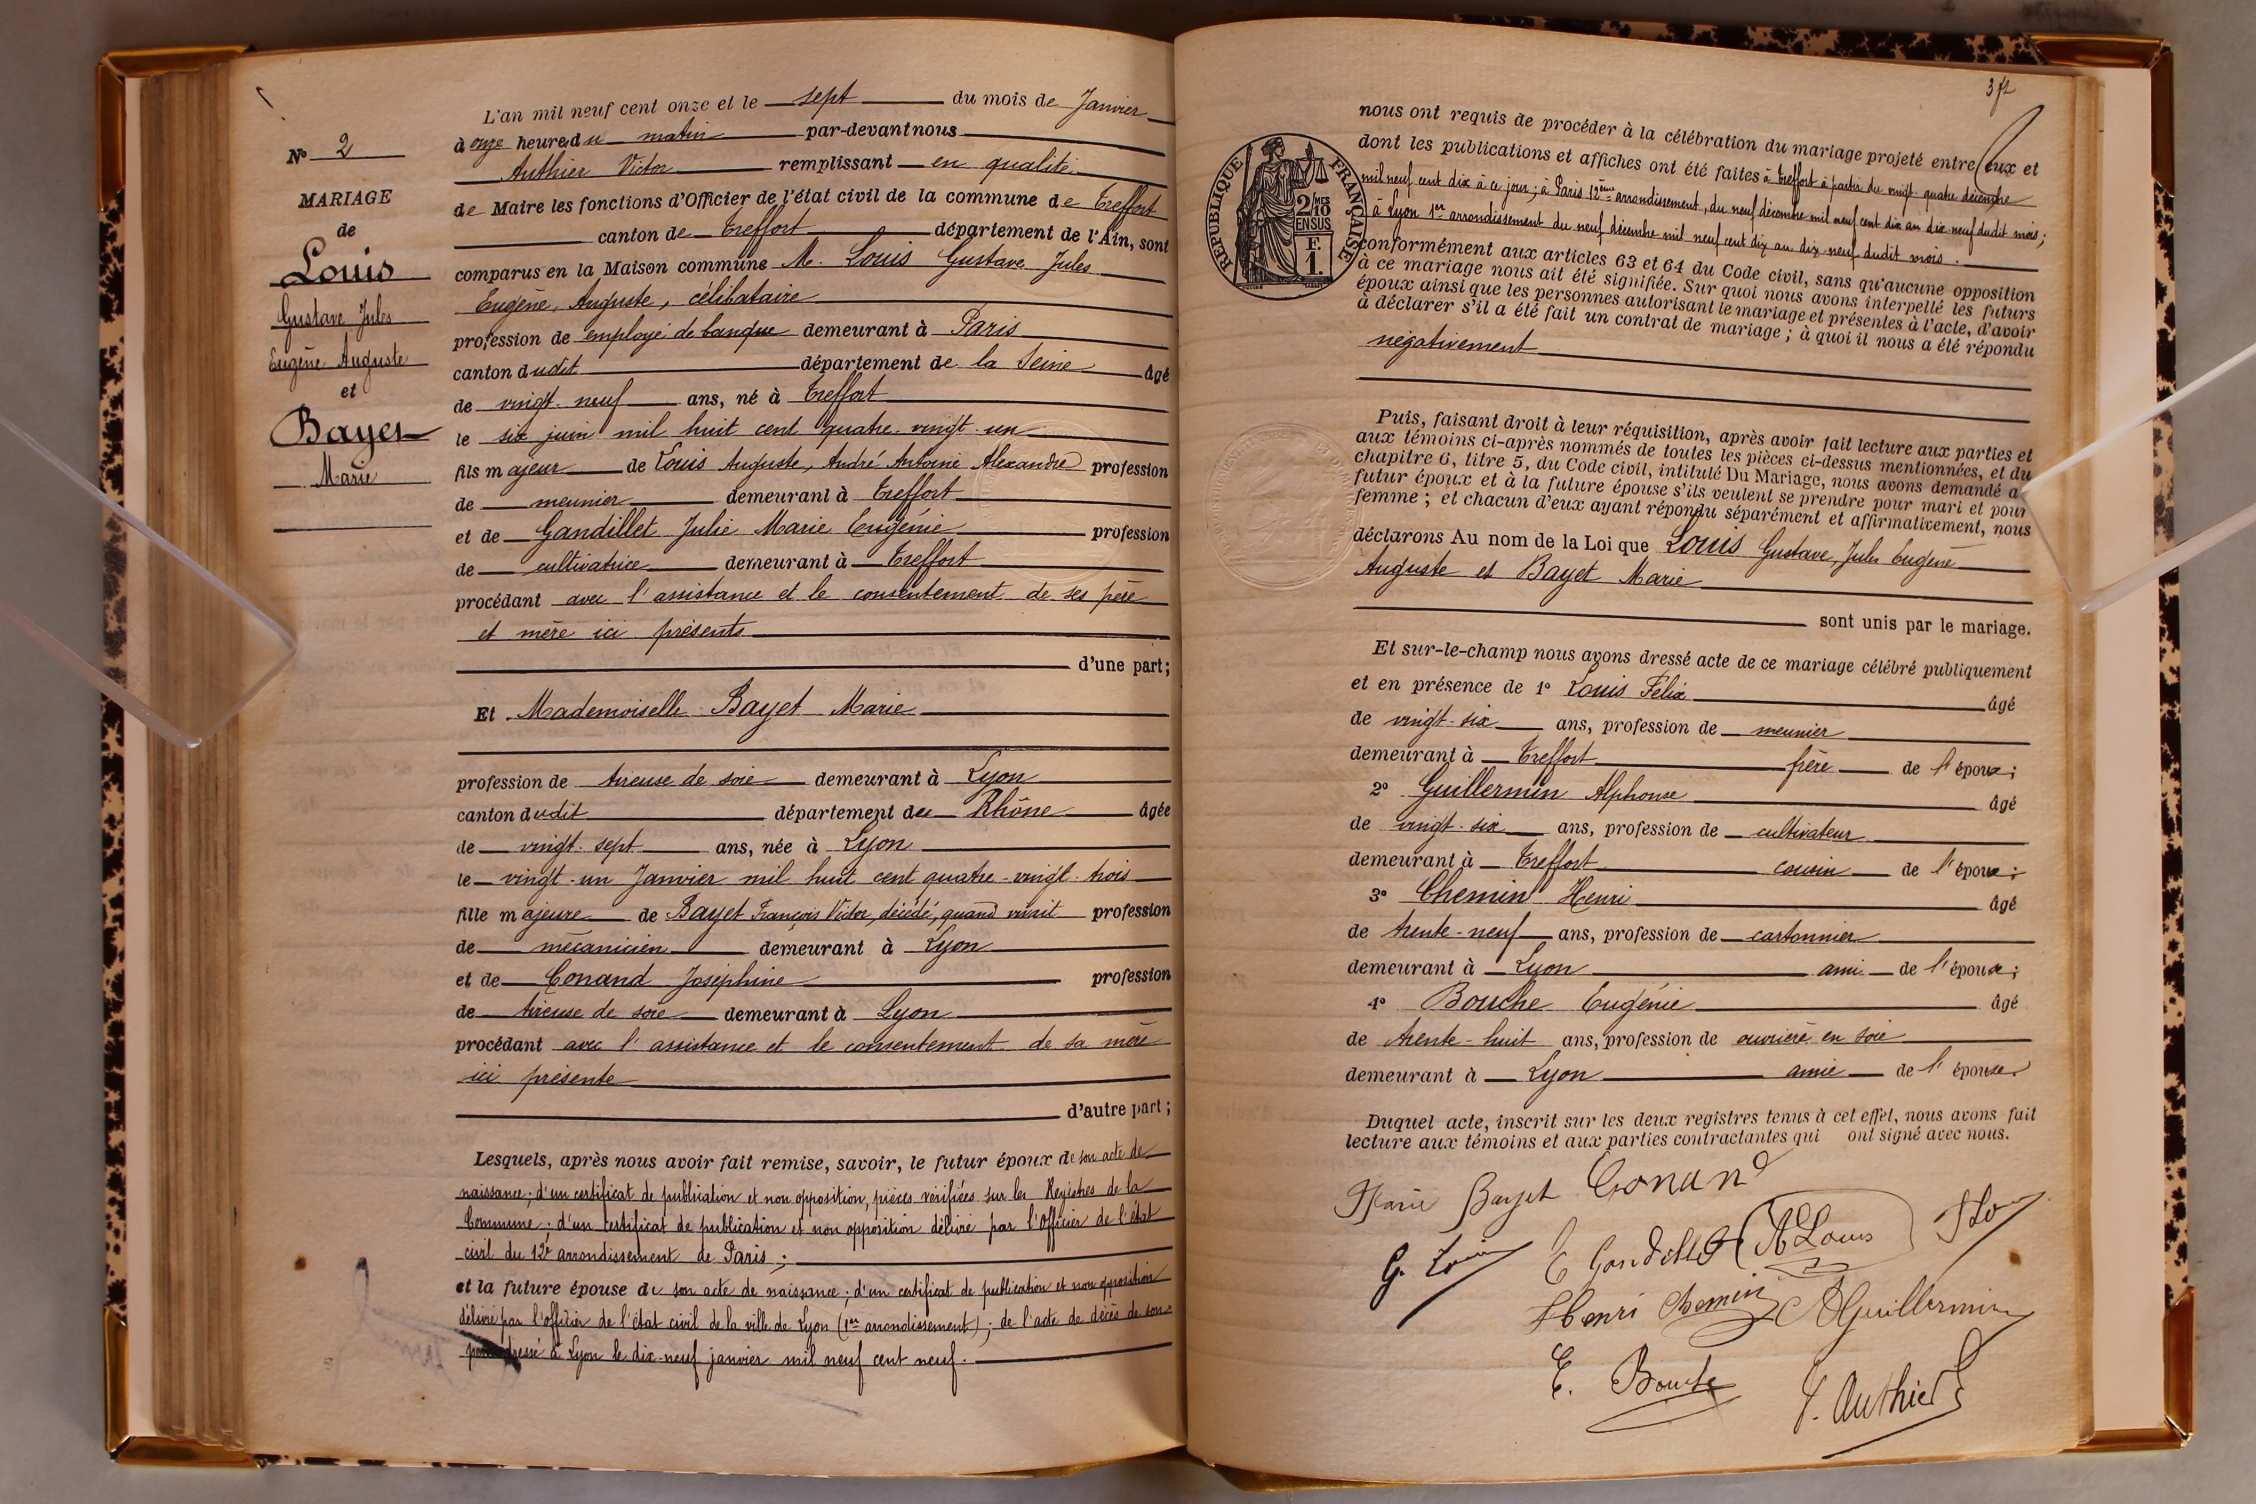 L'an mil neuf cent onze et le sept du mois de Janvier
à onze heures du matin par-devant nous
Authier Victor remplissant en qualité
de Maire les fonctions d'Officier de l'état civil de la commune de Treffort
canton de Treffort département de l'Ain, sont
comparus en la Maison commune M. Louis Gustave Jules
Eugène, Auguste, célibataire
profession de employé de banque demeurant à Paris
canton dudit département de la Seine âgé
de vingt-neuf ans, né à Treffort
le six juin mil huit cent quatre-vingt-un
fils majeur de Louis Auguste, André Antoine Alexandre profession
de meunier demeurant à Treffort
et de Gandillet Julie Marie Eugénie profession
de cultivatrice demeurant à Treffort
procédant avec l'assistance et le consentement de ses père
et mère ici présents
d'une part;
Et Mademoiselle Bayet Marie
profession de tireuse de soie demeurant à Lyon
canton dudit département du Rhône âgée
de vingt-sept ans, née à Lyon
le vingt-un Janvier mil huit cent quatre-vingt-trois
fille majeure de Bayet François Victor, décédé, quand vivait profession
de mécanicien demeurant à Lyon
et de Conand Joséphine profession
de tireuse de soie demeurant à Lyon
procédant avec l'assistance et le consentement de sa mère
ici présente
d'autre part;
Lesquels, après nous avoir fait remise, savoir, le futur époux de son acte de
naissance; d'un certificat de publication et non opposition, pièces vérifiées sur les Registres de la
Commune; d'un certificat de publication et non opposition délivré par l'Officier de l'état
civil du 12e arrondissement de Paris;
et la future épouse de son acte de naissance; d'un certificat de publication et non opposition
délivré par l'officier de l'état civil de la ville de Lyon (1er arrondissement); de l'acte de décès de son
père dressé à Lyon le dix-neuf janvier mil neuf cent neuf.
N° 2
MARIAGE
de
Louis
Gustave Jules
Eugène Auguste
et
Bayet
Marie
nous ont requis de procéder à la célébration du mariage projeté entre eux et
dont les publications et affiches ont été faites à Treffort à partir du vingt-quatre décembre
mil neuf cent dix à ce jour; à Paris 12ème arrondissement, du neuf décembre mil neuf cent dix au dix-neuf dudit mois;
à Lyon 1er arrondissement du neuf décembre mil neuf cent dix au dix-neuf dudit mois.
conformément aux articles 63 et 64 du Code civil, sans qu'aucune opposition
à ce mariage nous ait été signifiée. Sur quoi nous avons interpellé les futurs
époux ainsi que les personnes autorisant le mariage et présentes à l'acte, d'avoir
à déclarer s'il a été fait un contrat de mariage; à quoi il nous a été répondu
négativement
RÉPUBLIQUE FRANÇAISE
2 MES
10
EN SUS
F.
1.
Puis, faisant droit à leur réquisition, après avoir fait lecture aux parties et
aux témoins ci-après nommés de toutes les pièces ci-dessus mentionnées, et du
chapitre 6, titre 5, du Code civil, intitulé Du Mariage, nous avons demandé au
futur époux et à la future épouse s'ils veulent se prendre pour mari et pour
femme; et chacun d'eux ayant répondu séparément et affirmativement, nous
déclarons Au nom de la Loi que Louis Gustave, Jules Eugène
Auguste et Bayet Marie
sont unis par le mariage.
Et sur-le-champ nous avons dressé acte de ce mariage célébré publiquement
et en présence de 1° Louis Félix âgé
de vingt-six ans, profession de meunier
demeurant à Treffort frère de l'époux;
2° Guillermin Alphonse âgé
de vingt-six ans, profession de cultivateur
demeurant à Treffort cousin de l'époux;
3° Chemin Henri âgé
de trente-neuf ans, profession de cartonnier
demeurant à Lyon ami de l'époux;
4° Bouche Eugénie âgé
de trente-huit ans, profession de ouvrière en soie
demeurant à Lyon amie de l'épouse
Duquel acte, inscrit sur les deux registres tenus à cet effet, nous avons fait
lecture aux témoins et aux parties contractantes qui ont signé avec nous.
Marie Bayet Conand
G. Louis E Gandillet A Louis F Louis
Henri Chemin A Guillermin
E. Bouche V. Authier